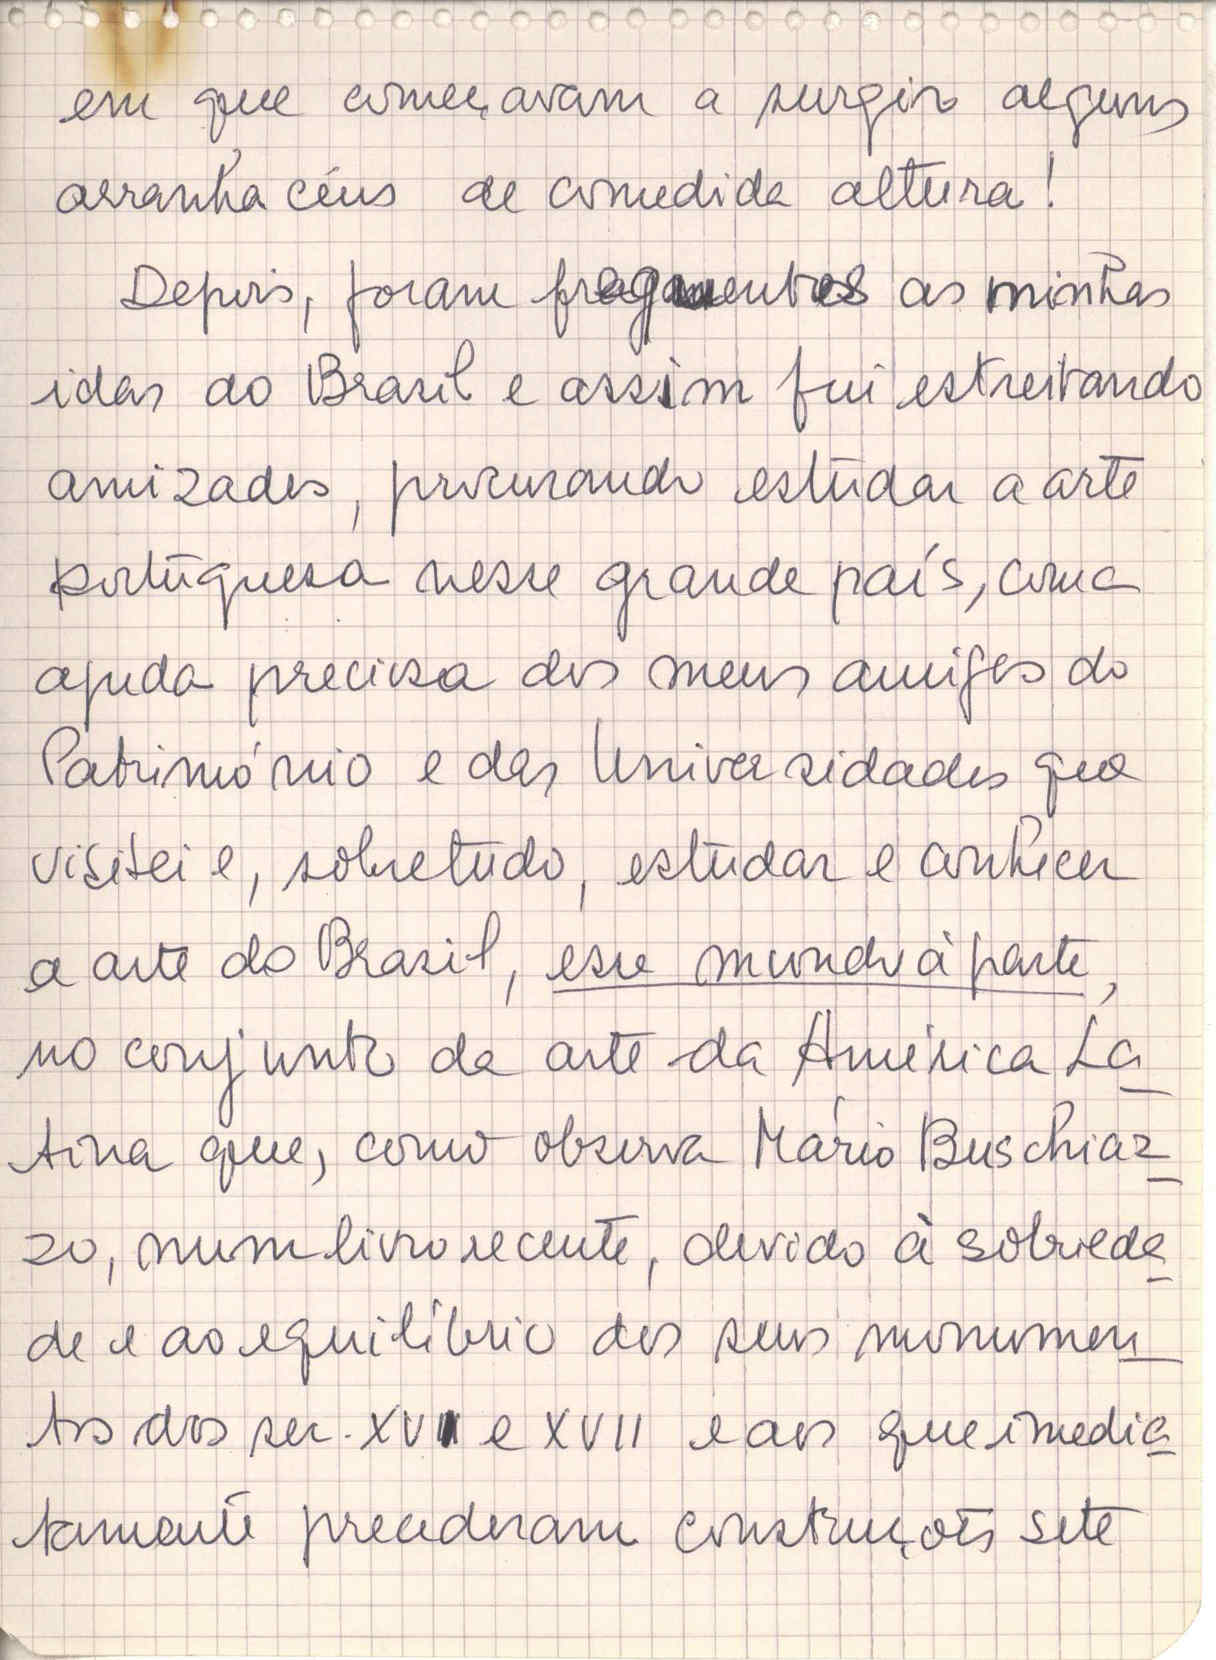 em que começavam a surgir alguns
arranha céus de comedida altura!
Depois, foram as minhas
idas ao Brasil e assim fui estreitando
amizades, procurando estudar a arte
portuguesa nesse grande país, com a
ajuda preciosa dos meus amigos do
Património e das Universidades que
visitei e, sobretudo, estudar e conhecer
a arte do Brasil, esse mundo à parte,
no conjunto da arte da América La
tina que, como observa Mário Buschiaz
zo, num livro recente, devido à sobrieda
de e ao equilíbrio dos seus monumen
tos dos sec. e XVII e aos que imedia
tamente precederam construções sete